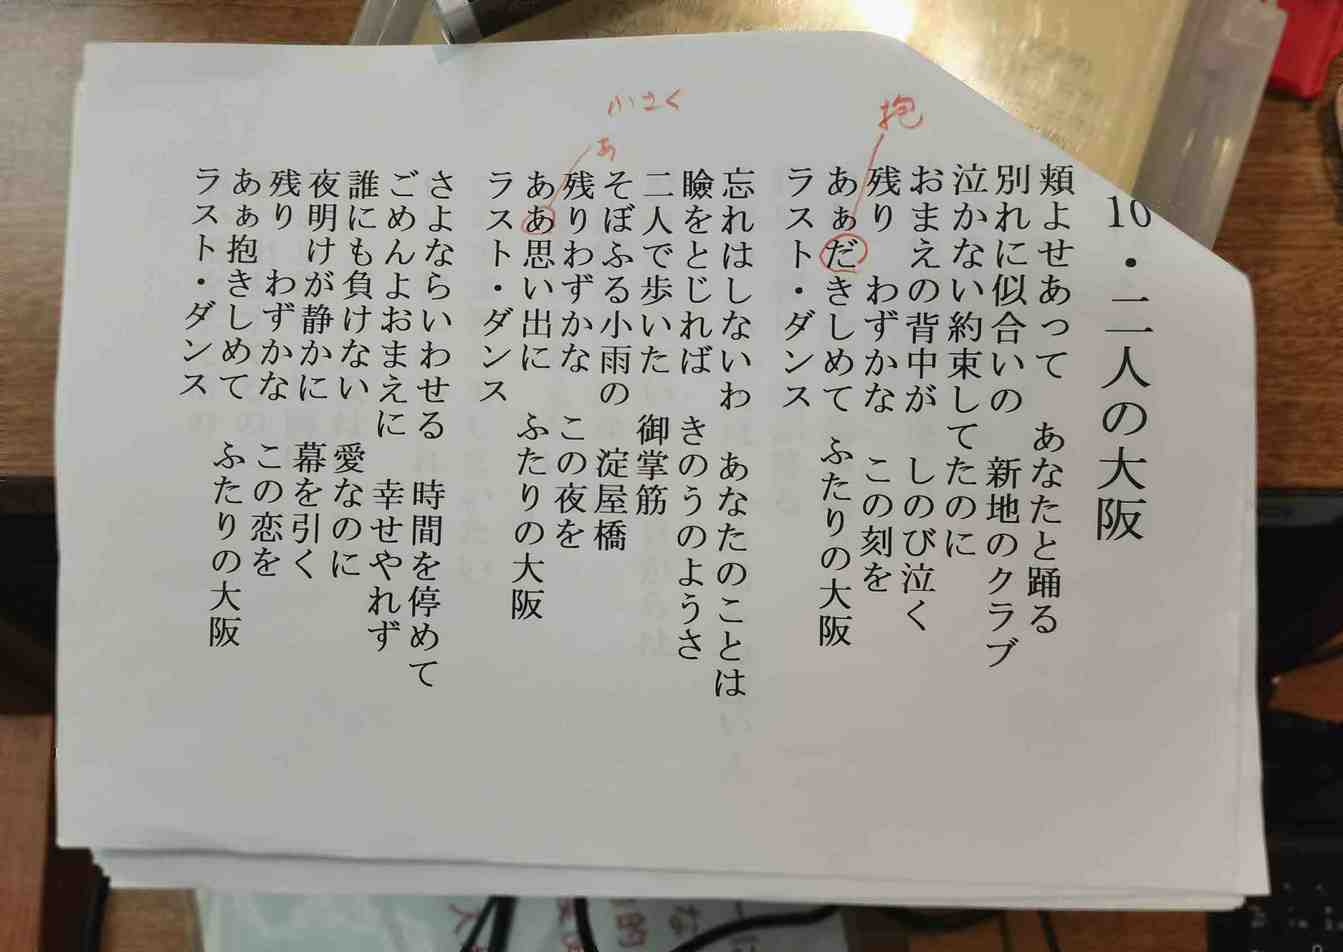 10・二人の大阪
頬よせあって　あなたと踊る
別れに似合いの　新地のクラブ
泣かない約束してたのに
おまえの背中が　しのび泣く
残り　わずかな　この刻を
あぁだきしめて　ふたりの大阪
ラスト・ダンス
抱
忘れはしないわ　あなたのことは
瞼をとじれば　きのうのようさ
二人で歩いた　御掌筋
そぼふる小雨の　淀屋橋
残りわずかな　この夜を
ああ思い出に　ふたりの大阪
ラスト・ダンス
小さく
ぁ
さよならいわせる　時間を停めて
ごめんよおまえに　幸せやれず
誰にも負けない　愛なのに
夜明けが静かに　幕を引く
残り　わずかな　この恋を
あぁ抱きしめて　ふたりの大阪
ラスト・ダンス